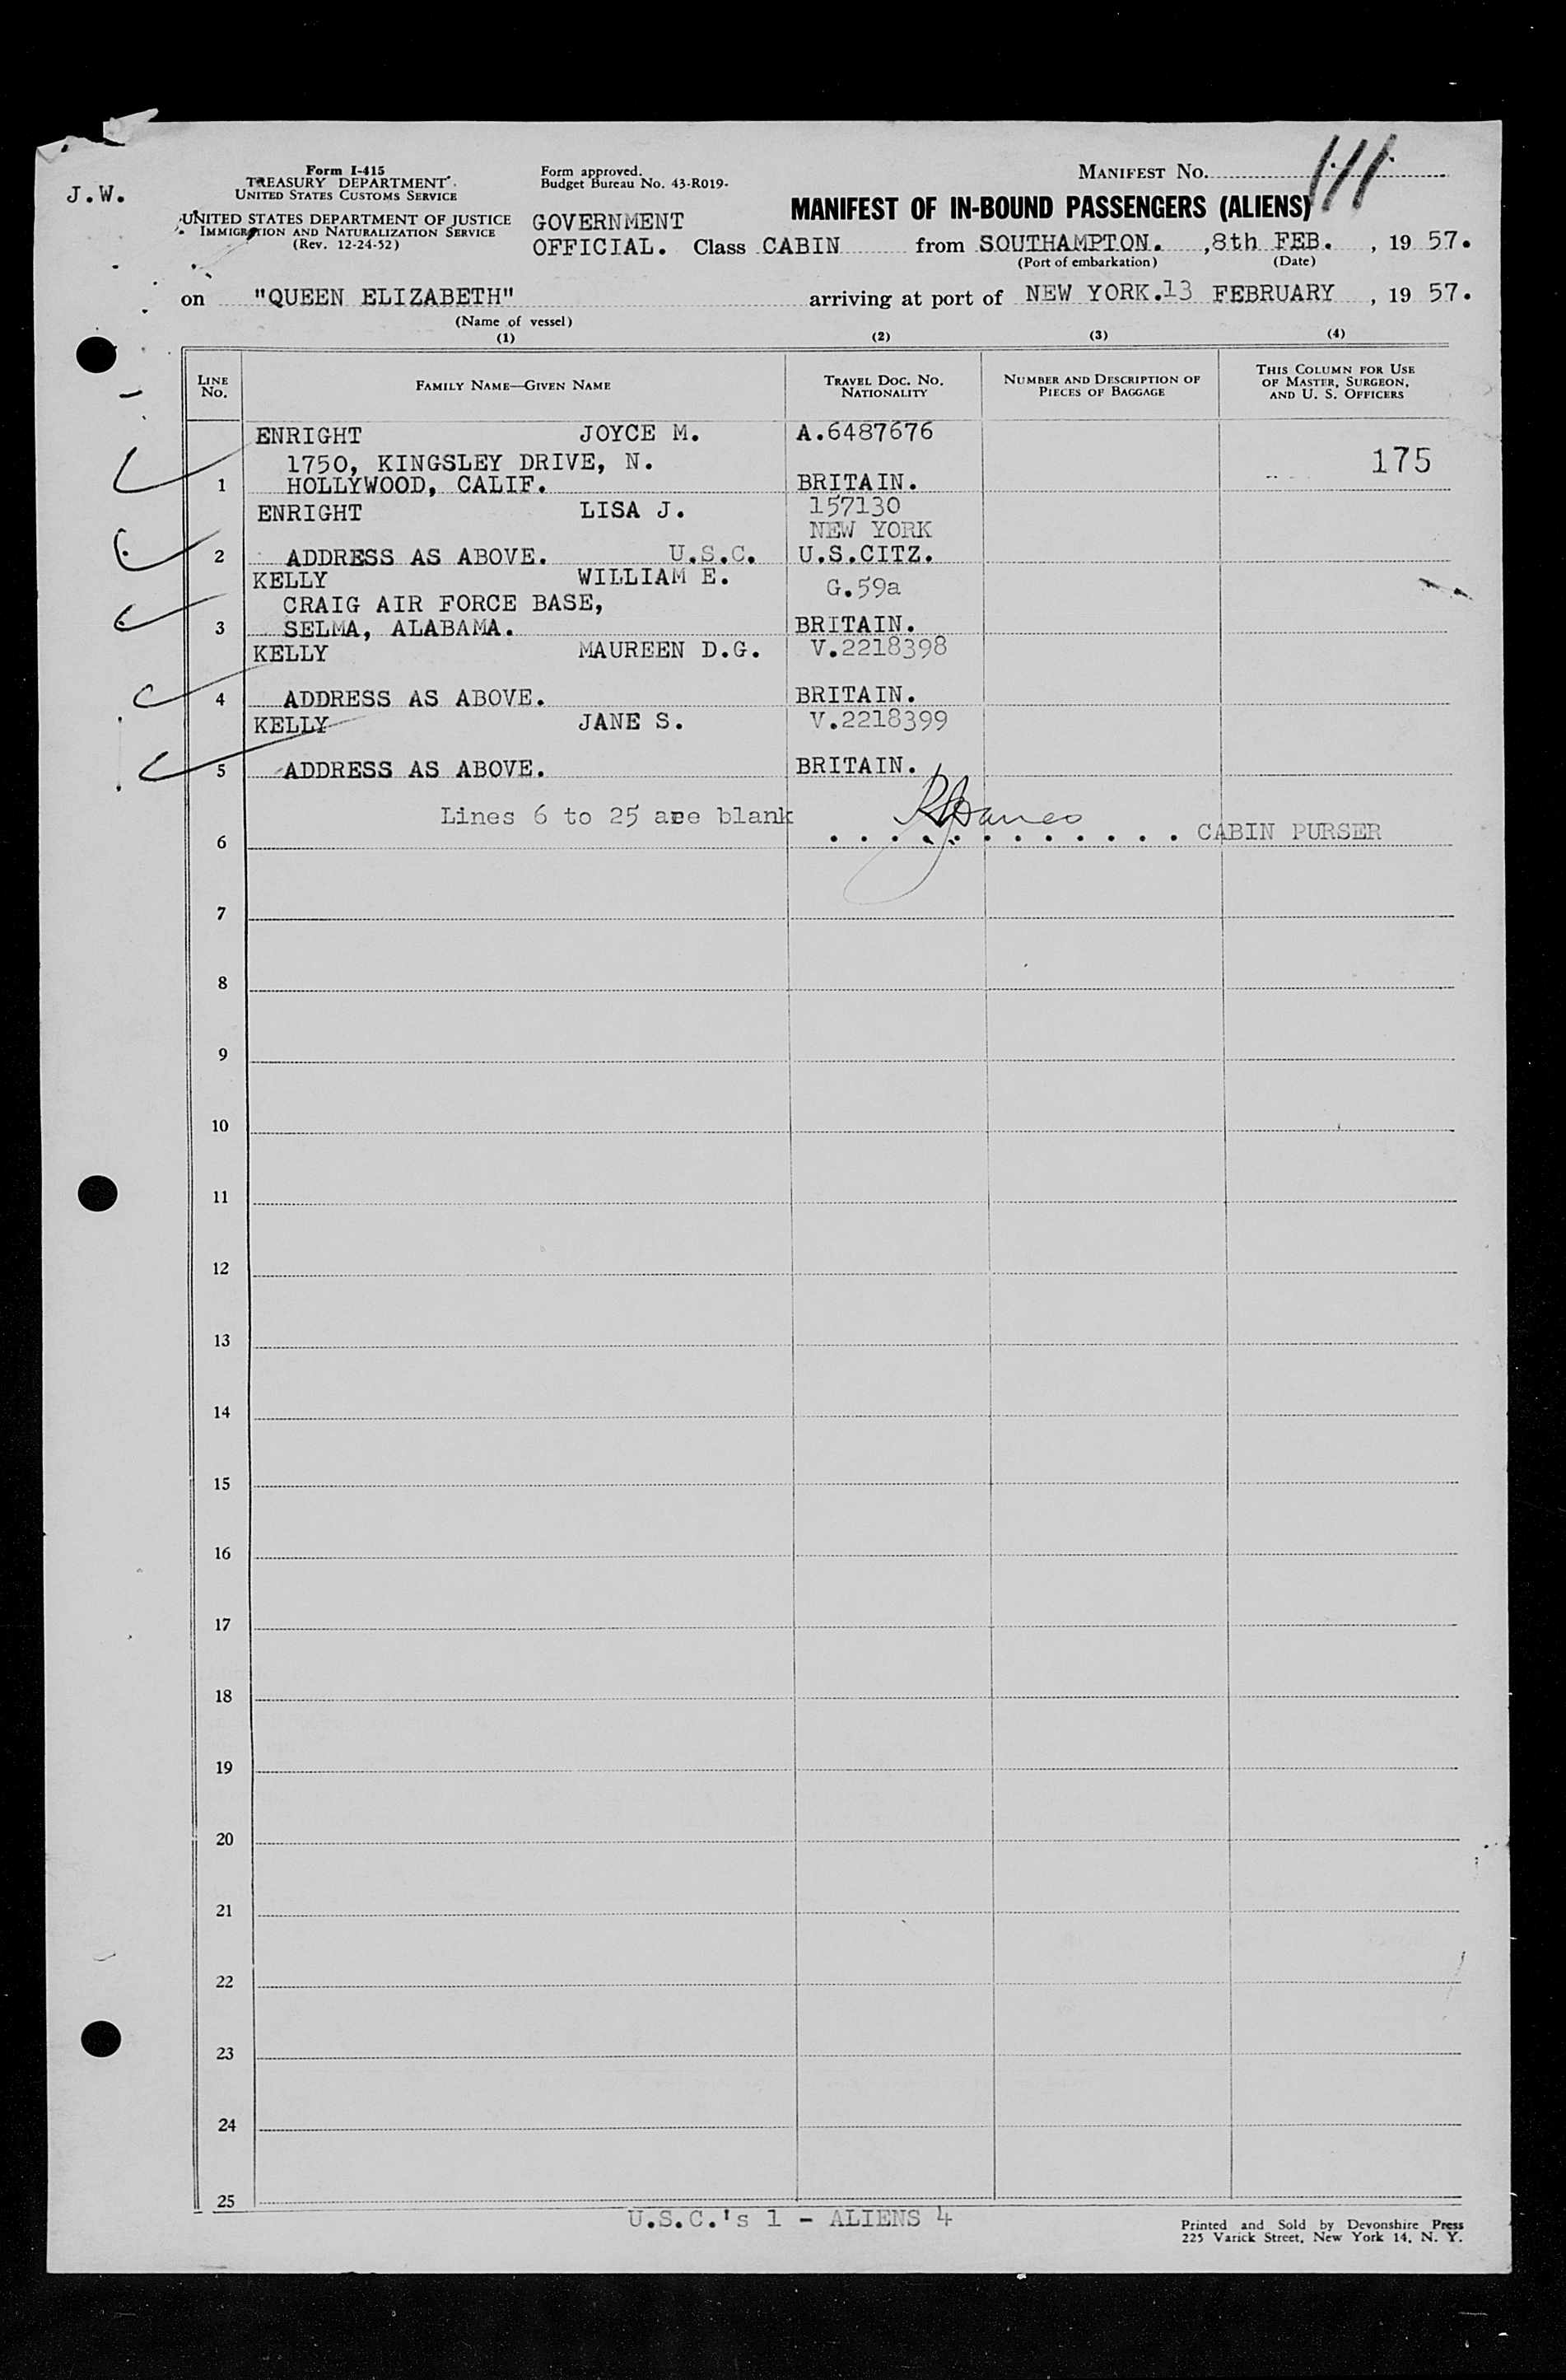 J.W.
Form I-415
TREASURY DEPARTMENT
UNITED STATES CUSTOMS SERVICE
UNITED STATES DEPARTMENT OF JUSTICE
IMMIGRATION AND NATURALIZATION SERVICE
(Rev. 12-24-52)
Form approved.
Budget Bureau No. 43-R019-
MANIFEST No. 111
MANIFEST OF IN-BOUND PASSENGERS (ALIENS)
GOVERNMENT
OFFICIAL. Class CABIN from SOUTHAMPTON. , 8th FEB. , 19 57.
(Port of embarkation) (Date)
on "QUEEN ELIZABETH" arriving at port of NEW YORK. 13 FEBRUARY , 19 57.
(Name of vessel)
(1) (2) (3) (4)
LINE No. FAMILY NAME—GIVEN NAME TRAVEL DOC. No. NATIONALITY NUMBER AND DESCRIPTION OF PIECES OF BAGGAGE THIS COLUMN FOR USE OF MASTER, SURGEON, AND U. S. OFFICERS
ENRIGHT JOYCE M. A.6487676
1750, KINGSLEY DRIVE, N. 175
1 HOLLYWOOD, CALIF. BRITAIN.
ENRIGHT LISA J. 157130
NEW YORK
2 ADDRESS AS ABOVE. U.S.C. U.S.CITZ.
KELLY WILLIAM E. G.59a
CRAIG AIR FORCE BASE,
3 SELMA, ALABAMA. BRITAIN.
KELLY MAUREEN D.G. V.2218398
4 ADDRESS AS ABOVE. BRITAIN.
KELLY JANE S. V.2218399
5 ADDRESS AS ABOVE. BRITAIN.
Lines 6 to 25 are blank
6 . . . . . . . . . . . . CABIN PURSER
7
8
9
10
11
12
13
14
15
16
17
18
19
20
21
22
23
24
25
U.S.C.'s 1 - ALIENS 4
Printed and Sold by Devonshire Press
225 Varick Street, New York 14, N. Y.